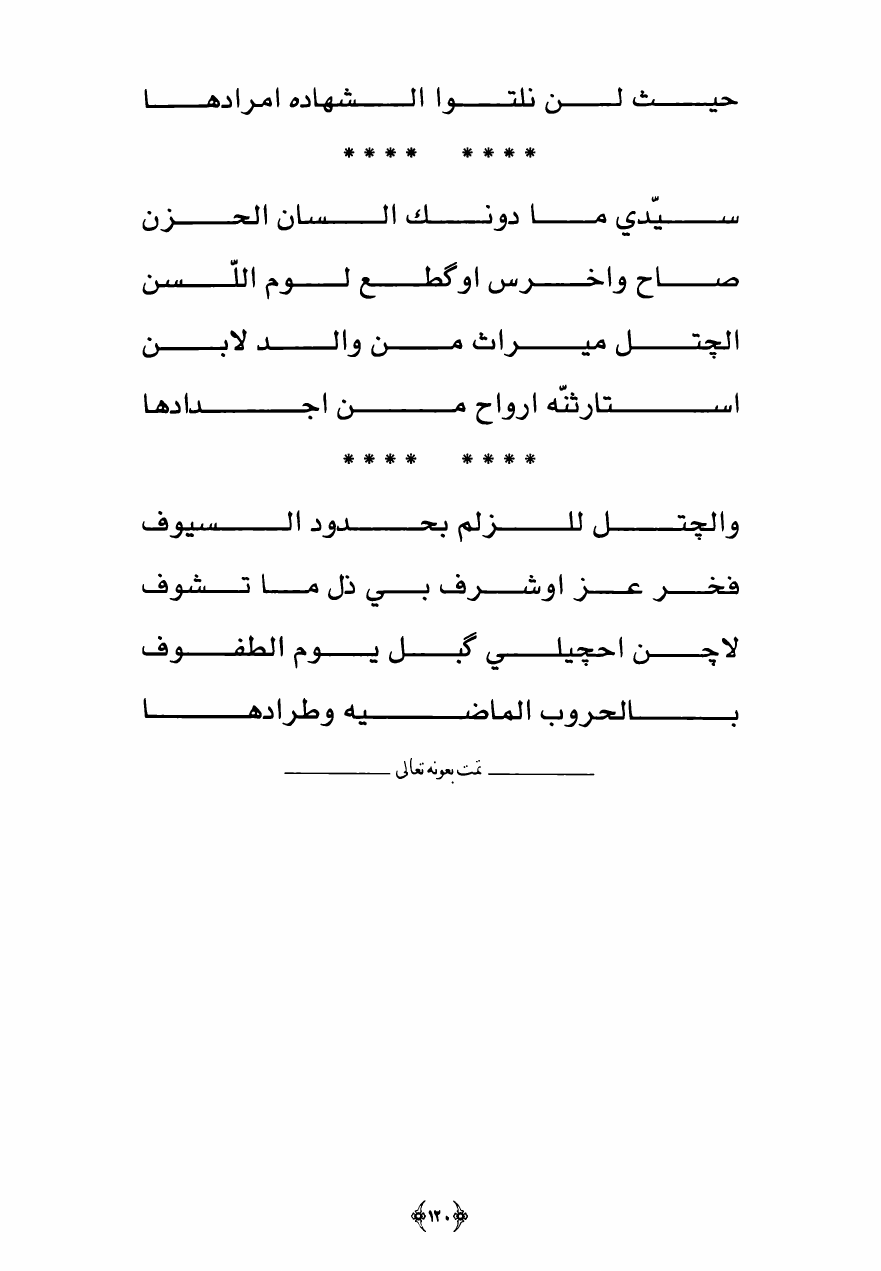 حيث لن نلتوا الشهاده امرادها
**** ****
سيّدي ما دونك السان الحزن
صاح واخرس اوگطع لوم اللّسن
الچتل ميراث من والد لابن
استارثنّه ارواح من اجدادها
**** ****
والچتل للزلم بحدود السيوف
فخر عز اوشرف بي ذل ما تشوف
لاچن احچيلي گبل يوم الطفوف
بالحروب الماضيه وطرادها
تمّت بعونه تعالى
﴿١٢٠﴾